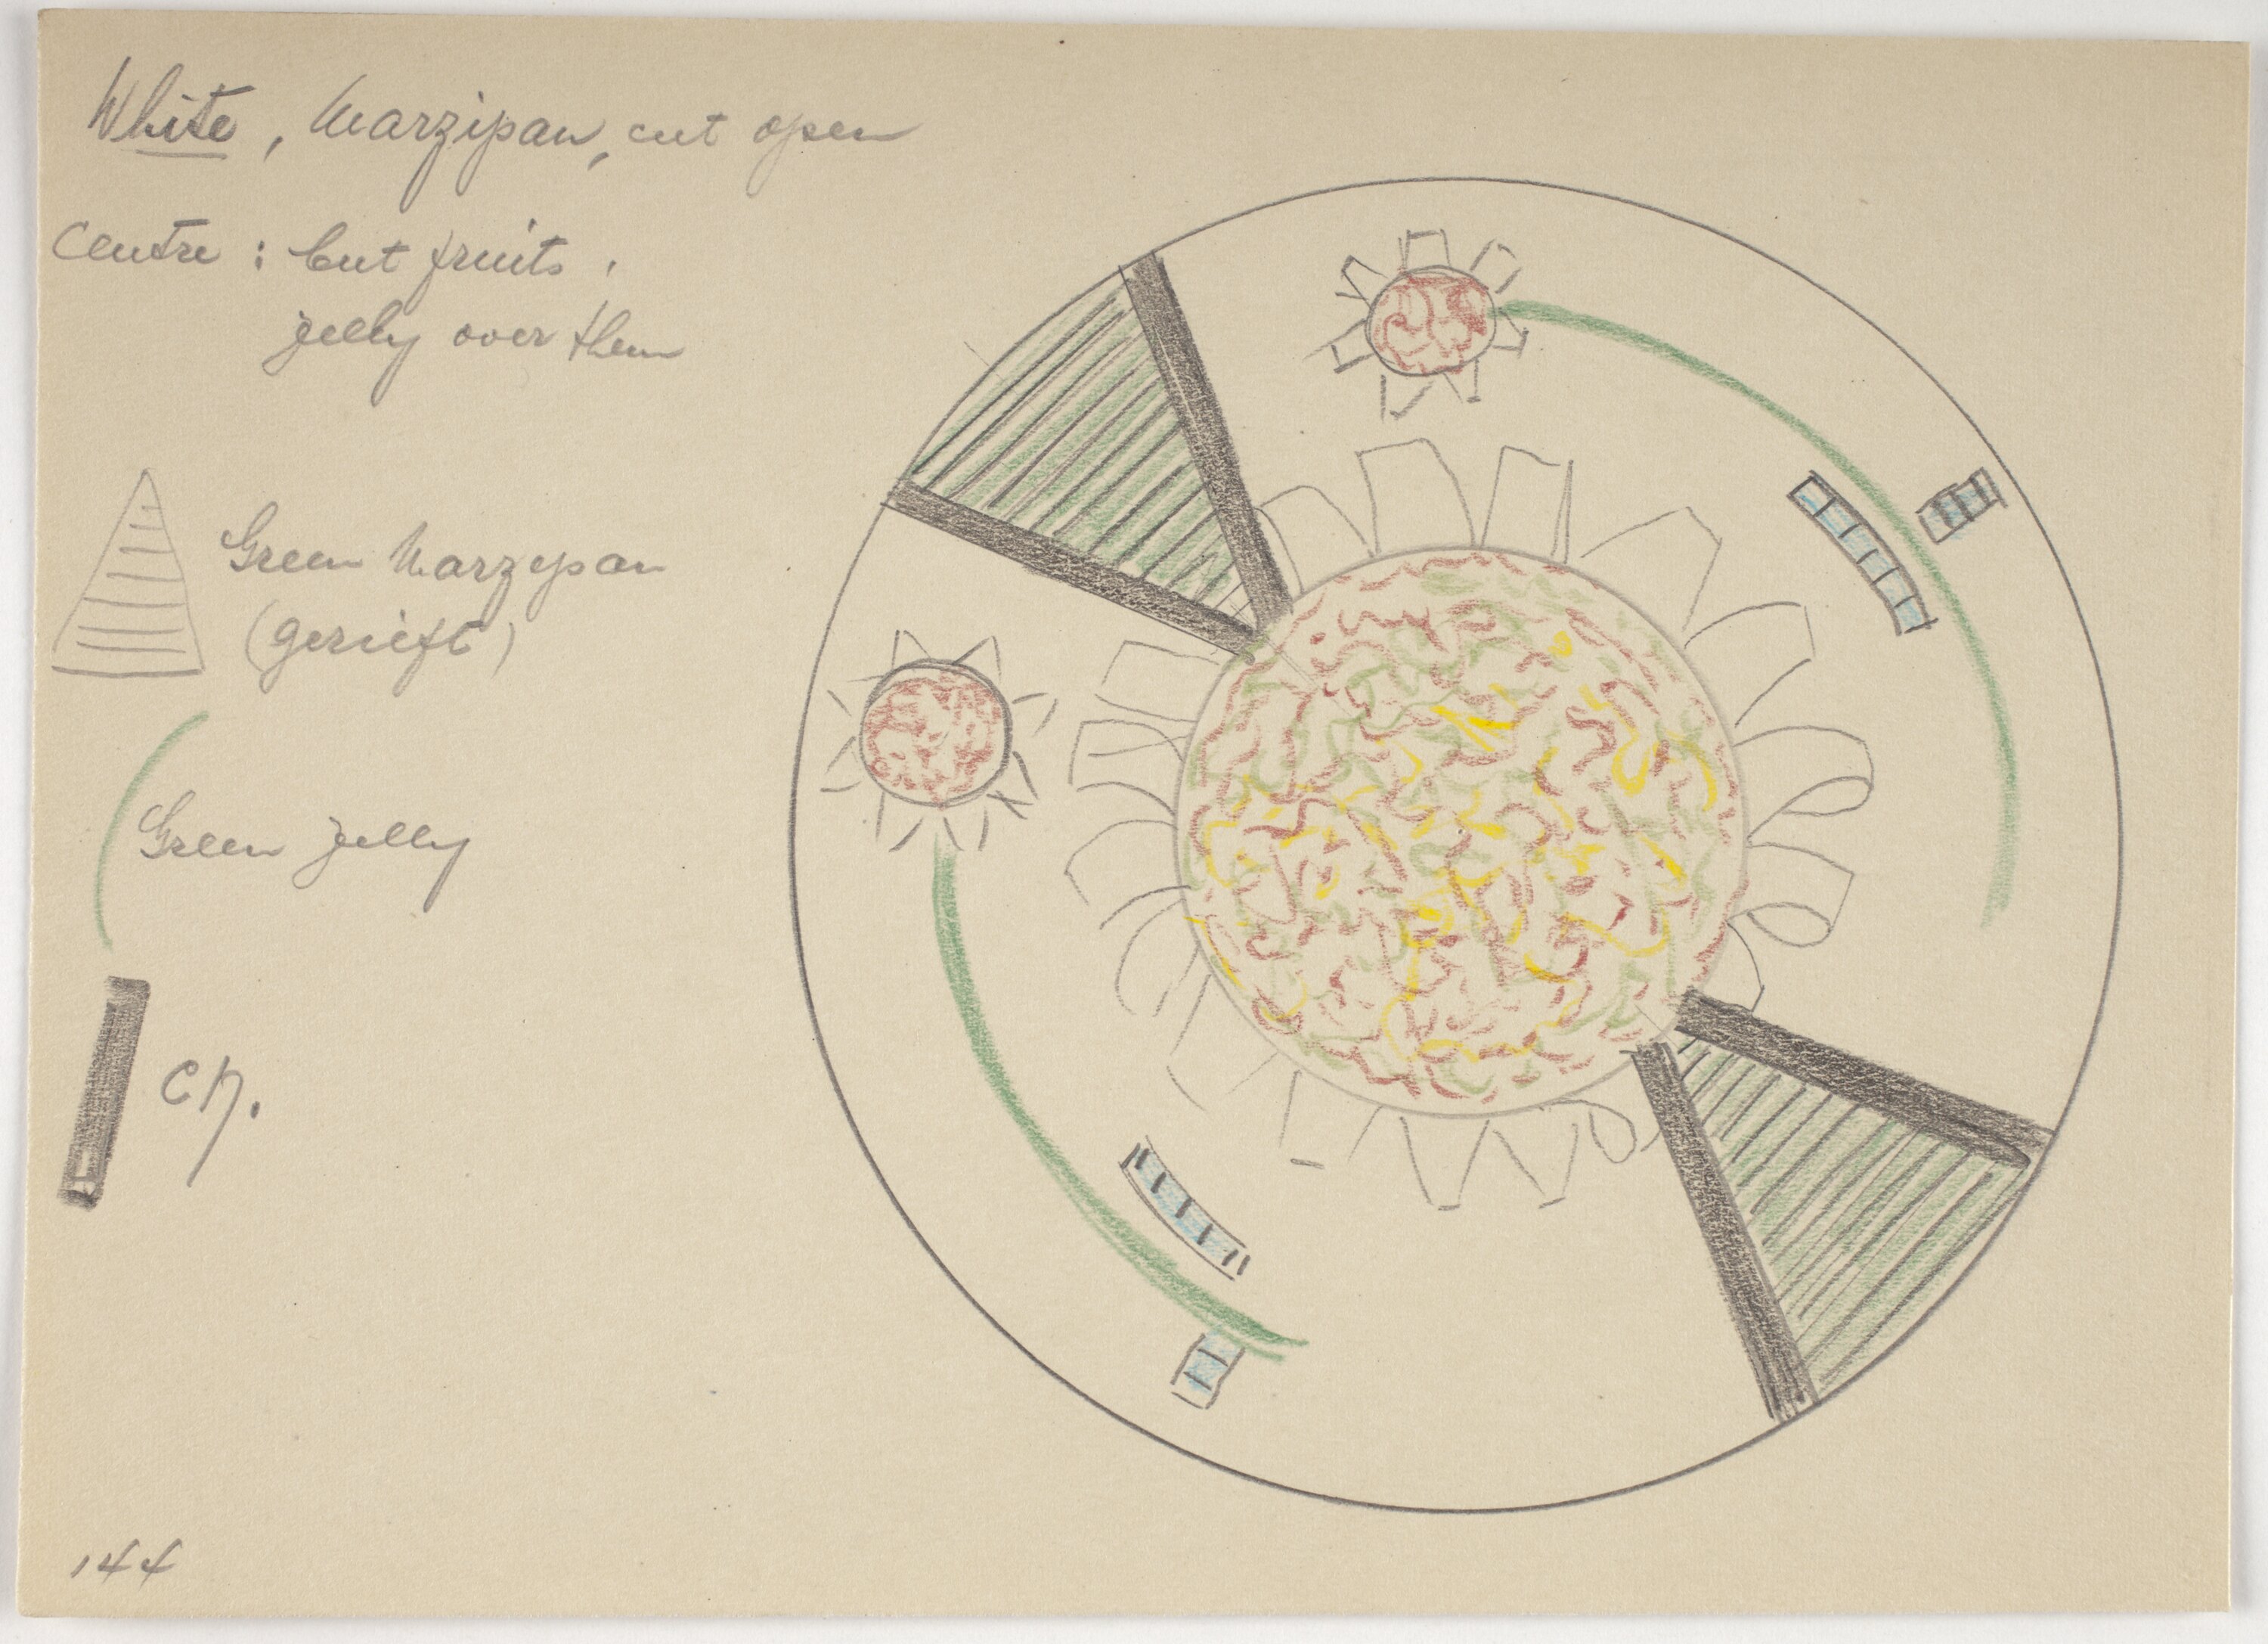 White, Marzipan, cut open
Centre : Cut fruits.
jelly over them
Green Marzepan
(gerieft)
Green jelly
CN.
144